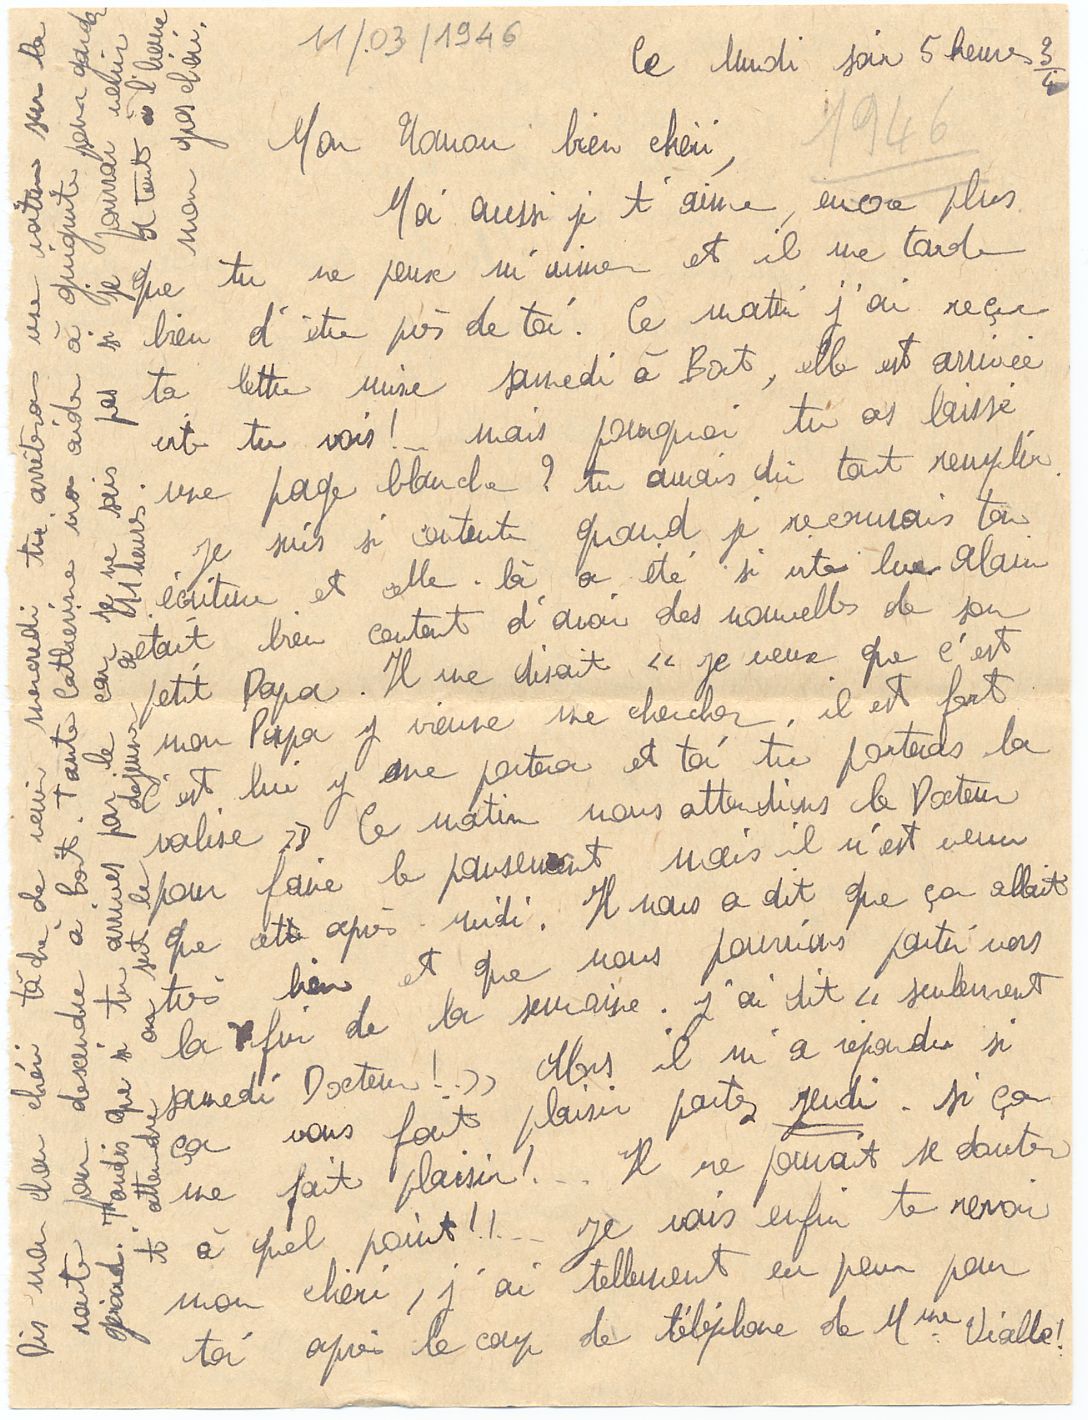 11/03/1946
Ce lundi soir 5 heures 3/4
1946
Mon Nanou bien chéri,
Moi aussi je t'aime, encore plus
que tu ne peux m'aimer et il me tarde
bien d'être près de toi. Ce matin j'ai reçu
ta lettre mise samedi à Bort, elle est arrivée
vite tu vois! _ mais pourquoi tu as laissé
une page blanche? tu aurais dû tout remplir.
Je suis si contente quand je reconnais ton
écriture et celle-là a été si vite lue Alain
était bien content d'avoir des nouvelles de son
petit Papa. Il me disait « je veux que c'est
mon Papa y vienne me chercher, il est fort
c'est lui y me portera et toi tu porteras la
valise » Ce matin nous attendions le Docteur
pour faire le pansement mais il n'est venu
que cette après-midi. Il nous a dit que ça allait
très bien et que nous pourrions partir vers
la fin de la semaine. J'ai dit « seulement
samedi Docteur!..» Alors il m'a répondu si
ça vous fait plaisir partez jeudi. si ça
me fait plaisir!... Il ne pouvait se douter
à quel point!!... Je vais enfin te revoir
mon chéri, j'ai tellement eu peur pour
toi après le coup de téléphone de Mme Vialle!
Dis mon chou chéri tâche de venir mercredi tu arrêteras une voiture sur la
route pour descendre à Bort. Tante Catherine m'a aidée à quinquin pour garder
gérard. Tandis que si tu arrives par le car je ne sais pas si je pourrai venir
t'attendre on sert le déjeuner à 11 heures. Be tant à l'heure
mon gros chéri.